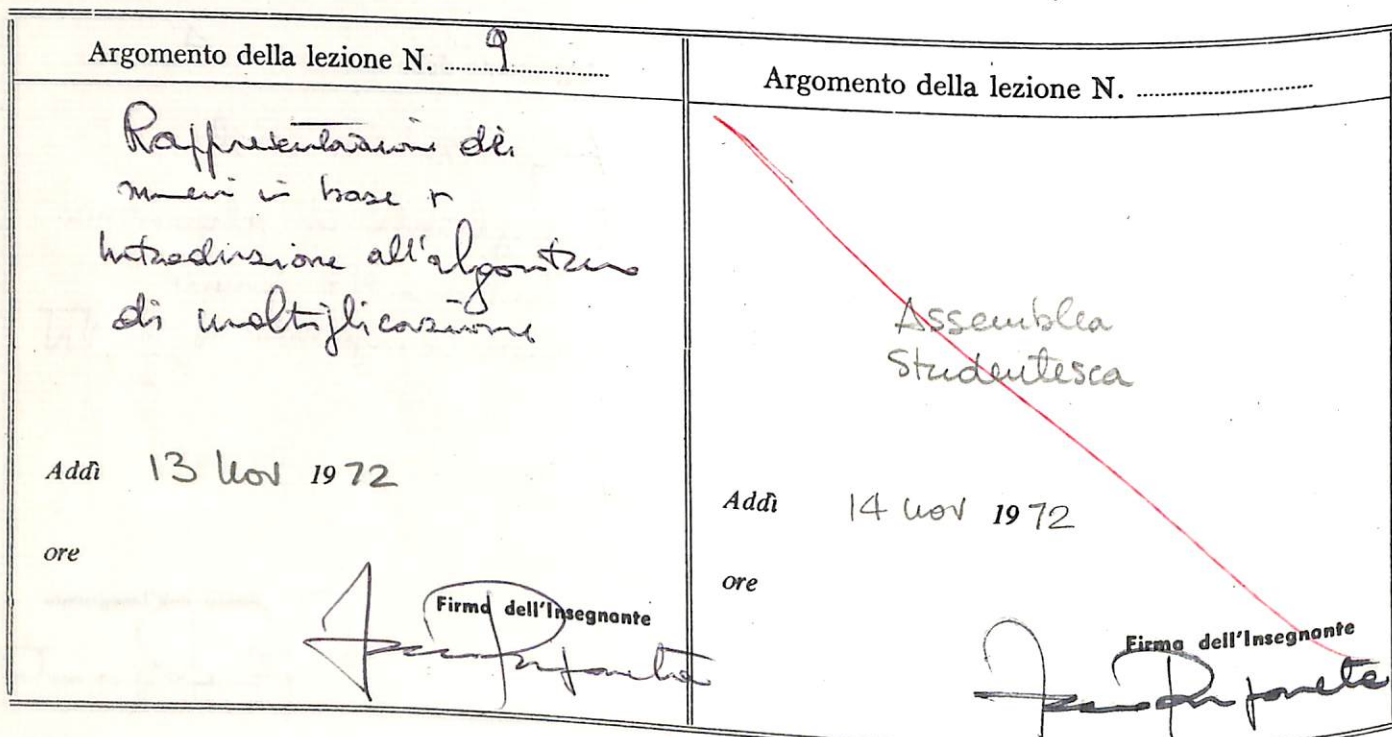 Argomento della lezione N. 9
Rappresentazione dei
numeri in base r
Introduzione all'algoritmo
di moltiplicazione
Addì 13 Nov 1972
ore
Firma dell'Insegnante
Argomento della lezione N.
Assemblea
Studentesca
Addì 14 Nov 1972
ore
Firma dell'Insegnante